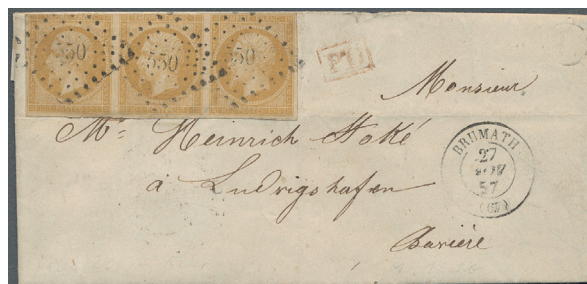 550 550 550
P.D.
Monsieur
Mr. Heinrich Stoké
à Ludwigshafen
Bavière
BRUMATH
27
NOV
57
(67)